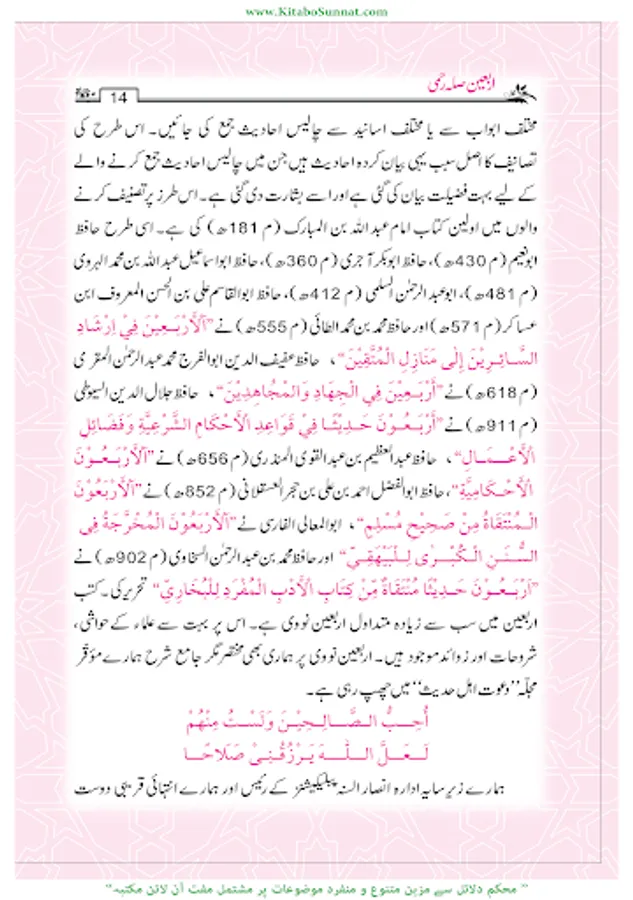 www.KitaboSunnat.com
اربعین صلہ رحمی
14
مختلف ابواب سے یا مختلف اسانید سے چالیس احادیث جمع کی جائیں۔ اس طرح کی
تصانیف کا اصل سبب یہی بیان کردہ احادیث ہیں جن میں چالیس احادیث جمع کرنے والے
کے لیے بہت فضیلت بیان کی گئی ہے اور اسے بشارت دی گئی ہے۔ اس طرز پر تصنیف کرنے
والوں میں اولین کتاب امام عبد اللہ بن المبارک (م 181ھ) کی ہے۔ اسی طرح حافظ
ابونعیم (م 430ھ)، حافظ ابوبکر آجری (م 360ھ)، حافظ ابو اسماعیل عبد اللہ بن محمد الہروی
(م 481ھ)، ابو عبد الرحمٰن السلمی (م 412ھ)، حافظ ابو القاسم علی بن الحسن المعروف ابن
عساکر (م 571ھ) اور حافظ محمد بن محمد الطائی (م 555ھ) نے ”اَلْأَرْبَعِيْنَ فِيْ إِرْشَادِ
السَّائِرِيْنَ إِلٰى مَنَازِلِ الْمُتَّقِيْنَ“، حافظ عفیف الدین ابو الفرج محمد عبد الرحمٰن المقری
(م 618ھ) نے ”أَرْبَعِيْنَ فِي الْجِهَادِ وَالْمُجَاهِدِيْنَ“، حافظ جلال الدین السیوطی
(م 911ھ) نے ”أَرْبَعُوْنَ حَدِيْثًا فِيْ قَوَاعِدِ الْأَحْكَامِ الشَّرْعِيَّةِ وَفَضَائِلِ
الْأَعْمَالِ“، حافظ عبد العظیم بن عبد القوی المنذری (م 656ھ) نے ”اَلْأَرْبَعُوْنَ
الْأَحْكَامِيَّةِ“، حافظ ابو الفضل احمد بن علی بن حجر العسقلانی (م 852ھ) نے ”اَلْأَرْبَعُوْنَ
الْمُنْتَقَاةُ مِنْ صَحِيْحِ مُسْلِمٍ“، ابو المعالی الفارسی نے ”اَلْأَرْبَعُوْنَ الْمُخَرَّجَةُ فِي
السُّنَنِ الْكُبْرٰى لِلْبَيْهَقِيْ“ اور حافظ محمد بن عبد الرحمٰن السخاوی (م 902ھ) نے
”أَرْبَعُوْنَ حَدِيْثًا مُنْتَقَاةً مِّنْ كِتَابِ الْأَدَبِ الْمُفْرَدِ لِلْبُخَارِيِّ“ تحریر کی۔ کتب
اربعین میں سب سے زیادہ متداول اربعین نووی ہے۔ اس پر بہت سے علماء کے حواشی،
شروحات اور زوائد موجود ہیں۔ اربعین نووی پر ہماری بھی مختصر مگر جامع شرح ہمارے مؤقر
مجلّہ ”دعوت اہل حدیث“ میں چھپ رہی ہے۔
أُحِبُّ الصَّالِحِيْنَ وَلَسْتُ مِنْهُمْ
لَعَلَّ اللّٰهَ يَرْزُقُنِيْ صَلَاحًا
ہمارے زیرِ سایہ ادارہ انصار السنہ پبلیکیشنز کے رئیس اور ہمارے انتہائی قریبی دوست
” محکم دلائل سے مزین متنوع و منفرد موضوعات پر مشتمل مفت آن لائن مکتبہ“